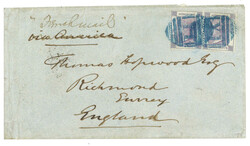 via America
Thomas Hopwood Esq
Richmond
Surrey
England